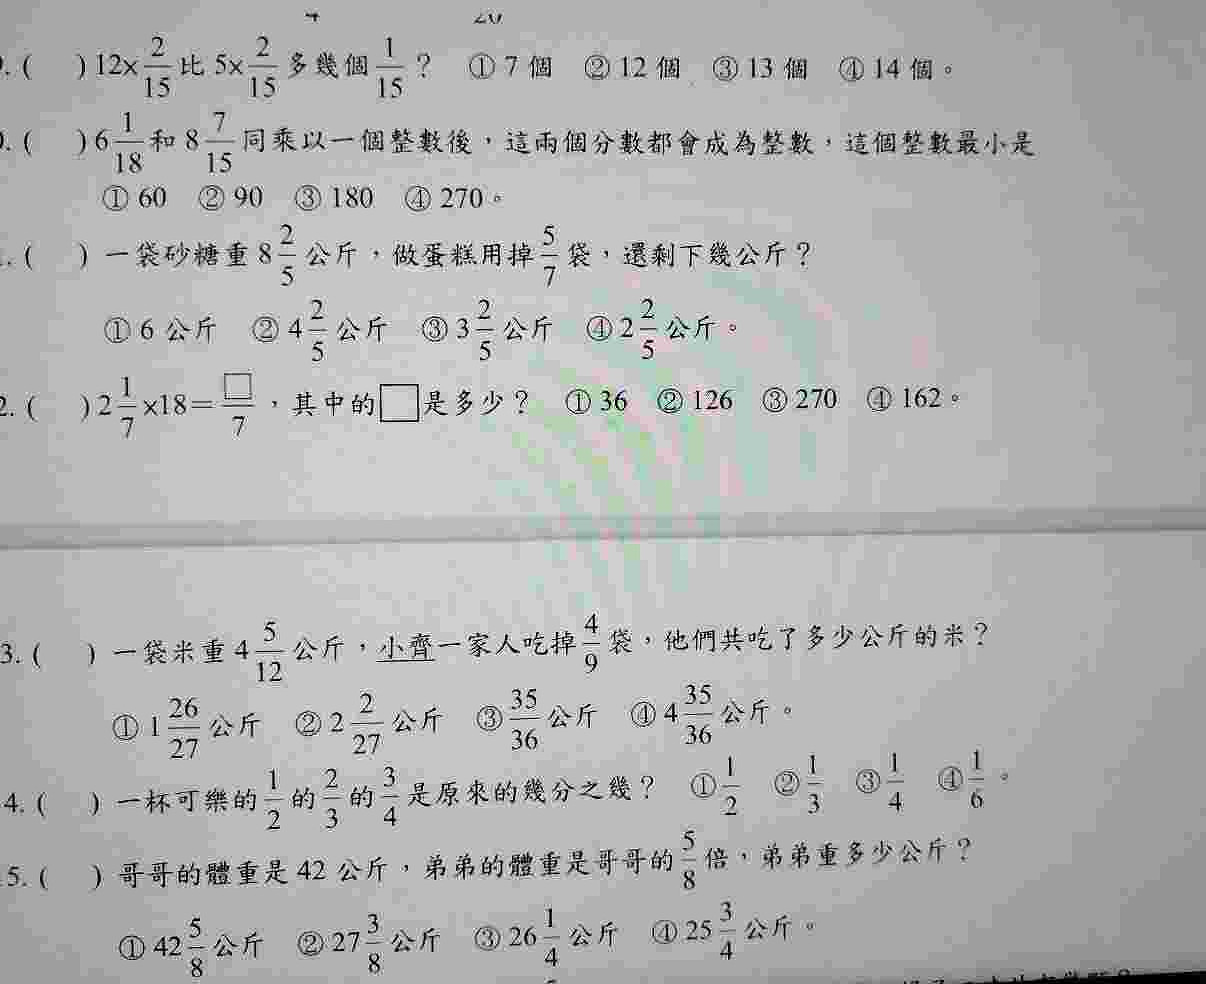 . (　) 12×2/15 比 5×2/15 多幾個 1/15？　① 7 個　② 12 個　③ 13 個　④ 14 個。
. (　) 6 1/18 和 8 7/15 同乘以一個整數後，這兩個分數都會成為整數，這個整數最小是
① 60　② 90　③ 180　④ 270。
. (　) 一袋砂糖重 8 2/5 公斤，做蛋糕用掉 5/7 袋，還剩下幾公斤？
① 6 公斤　② 4 2/5 公斤　③ 3 2/5 公斤　④ 2 2/5 公斤。
2. (　) 2 1/7 ×18＝□/7，其中的□是多少？　① 36　② 126　③ 270　④ 162。
3. (　) 一袋米重 4 5/12 公斤，小齊一家人吃掉 4/9 袋，他們共吃了多少公斤的米？
① 1 26/27 公斤　② 2 2/27 公斤　③ 35/36 公斤　④ 4 35/36 公斤。
4. (　) 一杯可樂的 1/2 的 2/3 的 3/4 是原來的幾分之幾？　① 1/2　② 1/3　③ 1/4　④ 1/6。
5. (　) 哥哥的體重是 42 公斤，弟弟的體重是哥哥的 5/8 倍，弟弟重多少公斤？
① 42 5/8 公斤　② 27 3/8 公斤　③ 26 1/4 公斤　④ 25 3/4 公斤。